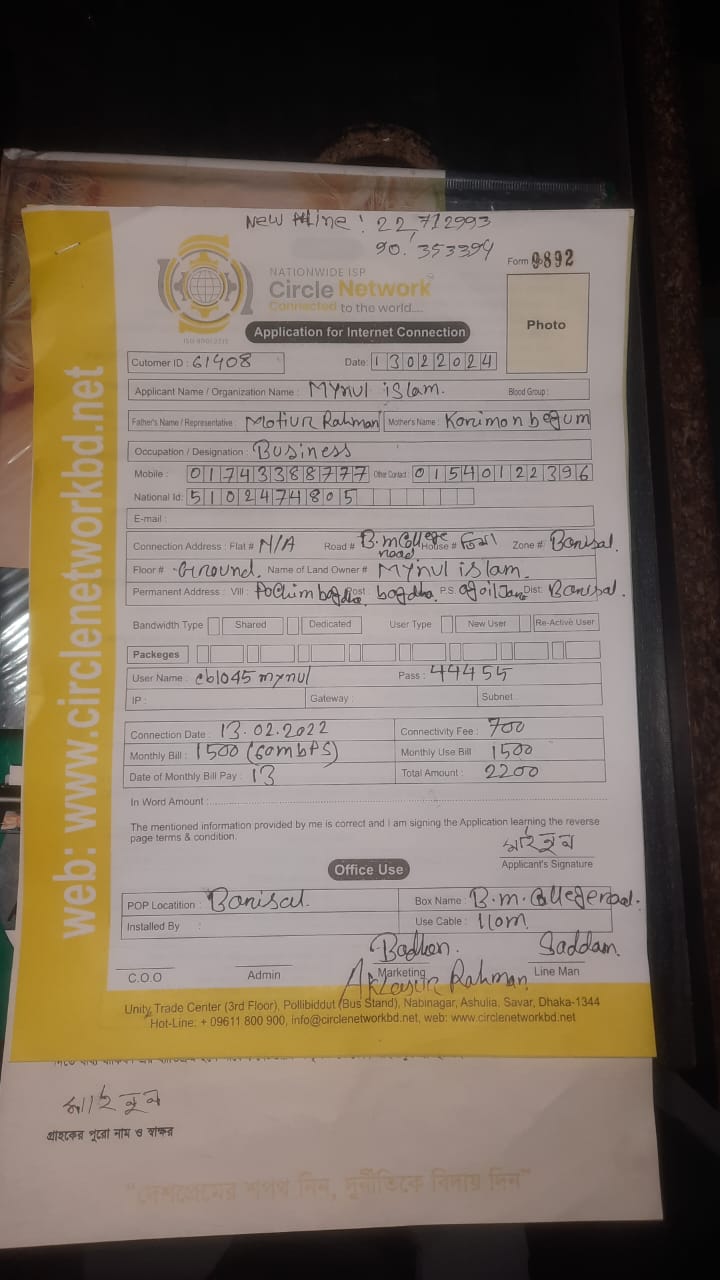 New Line : 22.712993
90.353394
Form 9892
NATIONWIDE ISP
Circle Network
Connected to the world....
ISO 9001:2015
Application for Internet Connection
Photo
Cutomer ID : 61408 Date 13022024
Applicant Name / Organization Name : Mynul islam. Blood Group :
Father's Name / Representative : Motiur Rahman Mother's Name : Konimon begum
Occupation / Designation : Business
Mobile : 01743388777 Other Contact : 01540122396
National Id: 5102474805
E-mail :
Connection Address : Flat # N/A Road # B.m College road. House # Zone # Barisal.
Floor # Ground. Name of Land Owner # Mynul islam.
Permanent Address : Vill : Pochim bagdha Post : bagdha P.S. agoiljara Dist: Barisal.
Bandwidth Type Shared Dedicated User Type New User Re-Active User
Packeges
User Name : cb1045mynul Pass : 44455
IP : Gateway : Subnet
Connection Date : 13.02.2022 Connectivity Fee : 700
Monthly Bill : 1500 (60mbps) Monthly Use Bill 1500
Date of Monthly Bill Pay : 13 Total Amount : 2200
In Word Amount :
The mentioned information provided by me is correct and i am signing the Application learning the reverse
page terms & condition.
মাইনুল
Applicant's Signature
Office Use
POP Locatition : Barisal. Box Name : B.m.College road.
Installed By : Use Cable : 110m
Badhon. Saddam.
C.O.O Admin Marketing Line Man
Rahman
Unity Trade Center (3rd Floor), Pollibiddut (Bus Stand), Nabinagar, Ashulia, Savar, Dhaka-1344
Hot-Line: + 09611 800 900, info@circlenetworkbd.net, web: www.circlenetworkbd.net
web: www.circlenetworkbd.net
মাইনুল
গ্রাহকের পুরো নাম ও স্বাক্ষর
“দেশপ্রেমের শপথ নিন, দুর্নীতিকে বিদায় দিন”